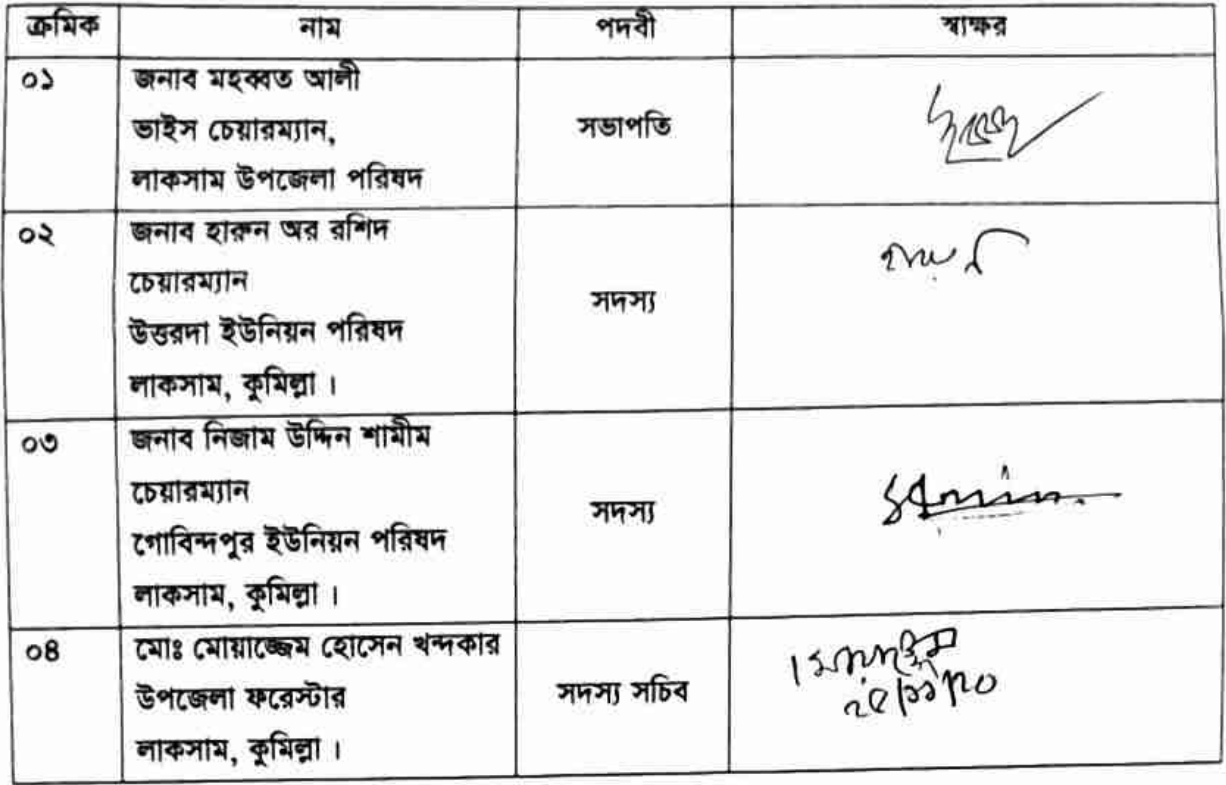 ক্রমিক নাম পদবী স্বাক্ষর
০১ জনাব মহব্বত আলী
ভাইস চেয়ারম্যান,
লাকসাম উপজেলা পরিষদ
সভাপতি
০২ জনাব হারুন অর রশিদ
চেয়ারম্যান
উত্তরদা ইউনিয়ন পরিষদ
লাকসাম, কুমিল্লা ।
সদস্য
০৩ জনাব নিজাম উদ্দিন শামীম
চেয়ারম্যান
গোবিন্দপুর ইউনিয়ন পরিষদ
লাকসাম, কুমিল্লা ।
সদস্য
০৪ মোঃ মোয়াজ্জেম হোসেন খন্দকার
উপজেলা ফরেস্টার
লাকসাম, কুমিল্লা ।
সদস্য সচিব
২৫/১১/২০